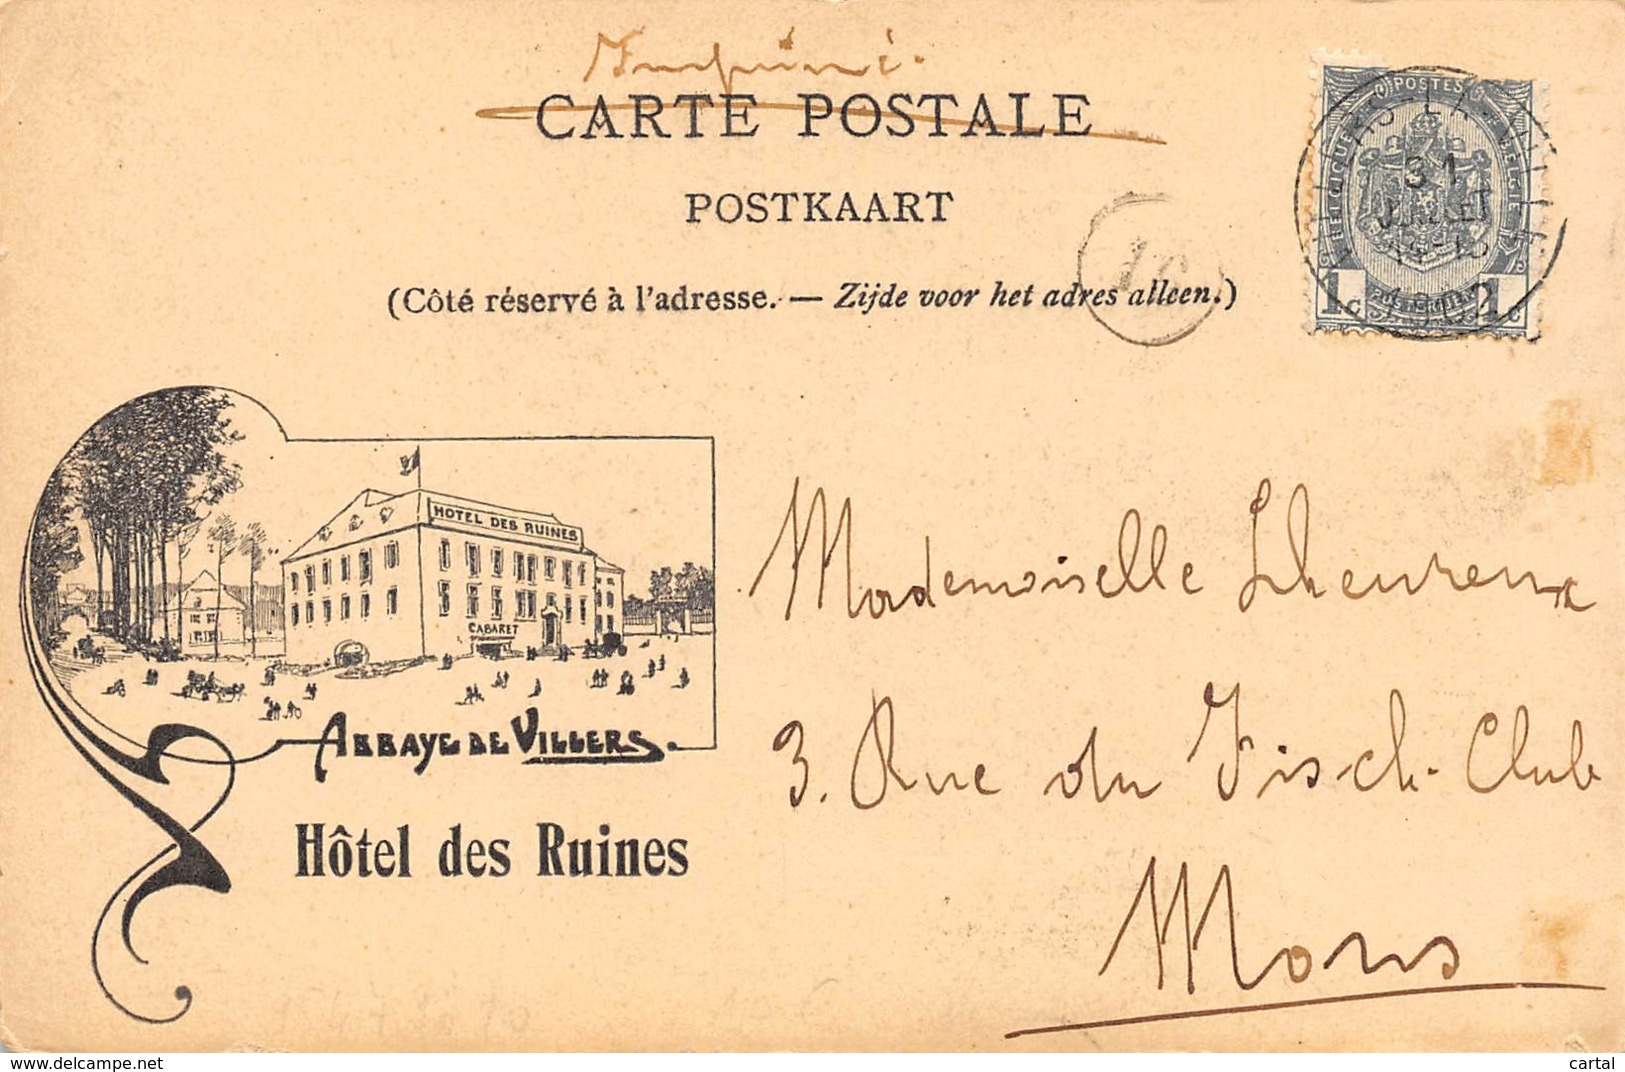 Imprimé.
CARTE POSTALE
POSTKAART
(Côté réservé à l'adresse. — Zijde voor het adres alleen.)
POSTES
BELGIQUE BELGIE
VILLERS-LA-VILLE
31
JUILLET
1902
1c 1c
1c
HOTEL DES RUINES
CABARET
ABBAYE DE VILLERS.
Hôtel des Ruines
Mademoiselle Lheureux
3. Rue du Fisch-Club
Mons
delcampe.net
cartal